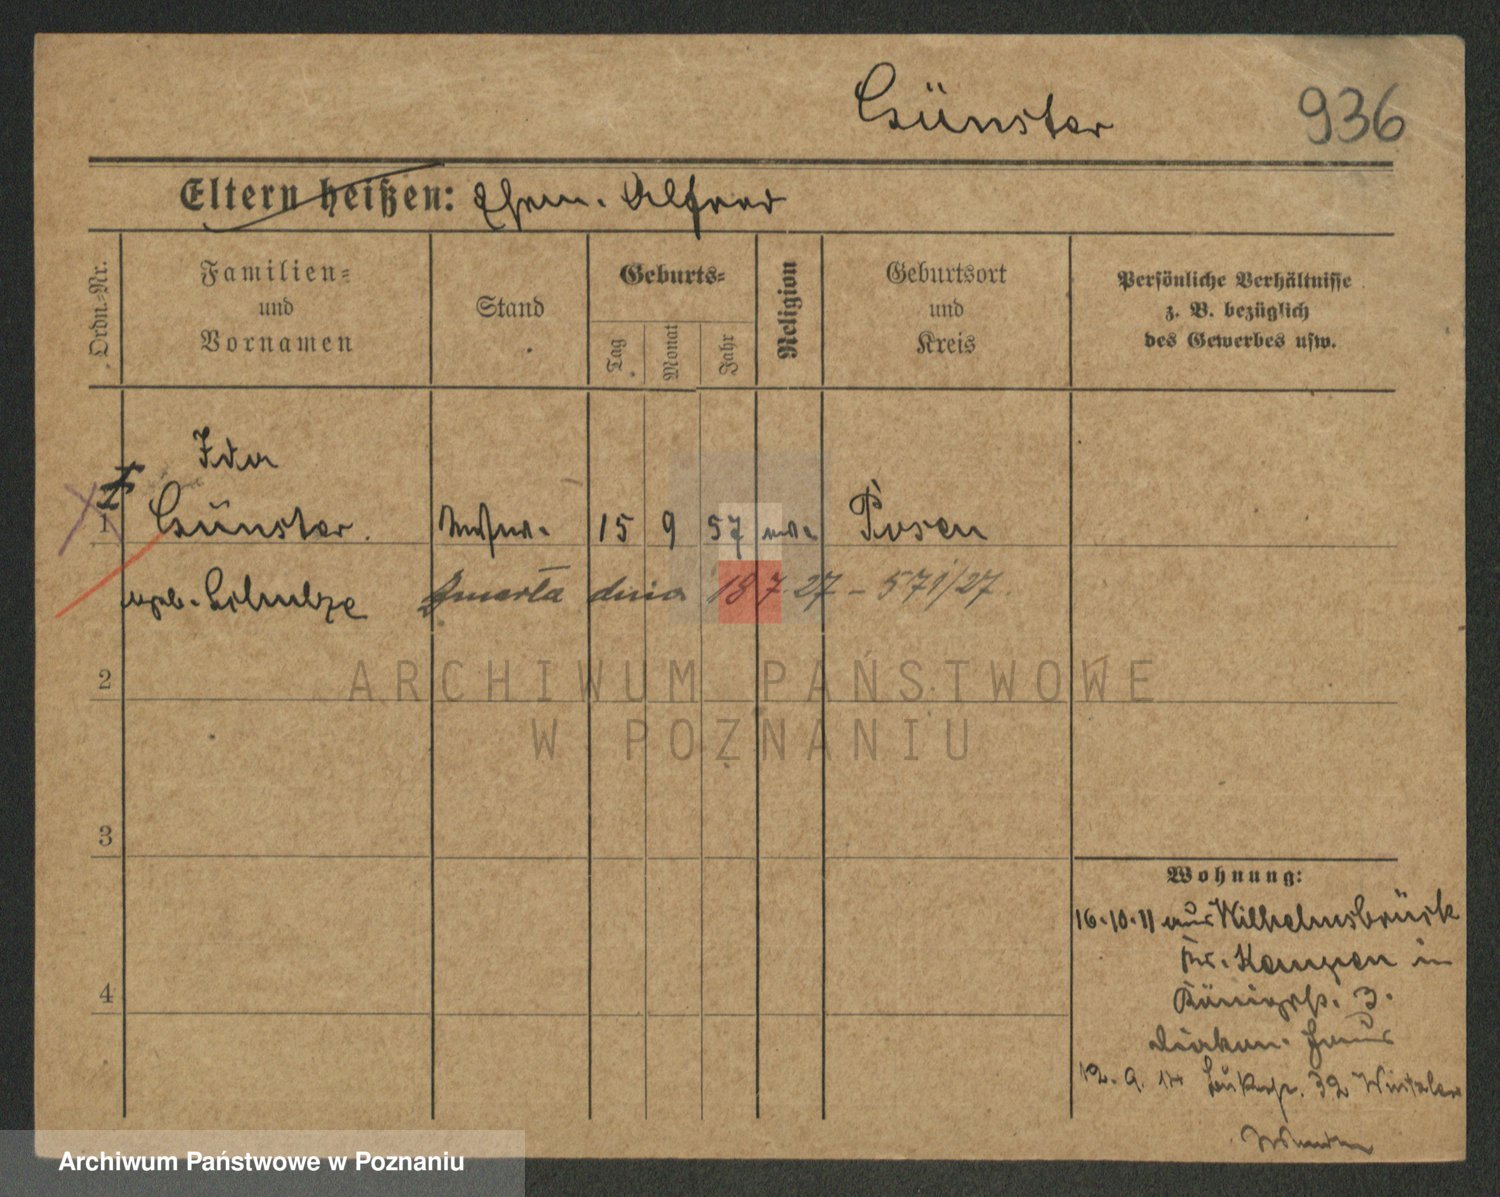 Günster 936
Eltern heißen: Ehem. Alfred
Ordn.-Nr.
Familien=
und
Vornamen
Stand
Geburts=
Tag
Monat
Jahr
Religion
Geburtsort
und
Kreis
Persönliche Verhältnisse
z. B. bezüglich
des Gewerbes usw.
Ida
1 Günster. 15 9 57 Posen
geb. Schulze Zmarła dnia 18 7 27 – 571/27.
2
3
4
Wohnung:
16.10.11 aus Wilhelmsbrück
Kr. Kempen in
Königstr. 3.
Diakon. Haus
12. 9. 14 32
ARCHIWUM PAŃSTWOWE
W POZNANIU
Archiwum Państwowe w Poznaniu